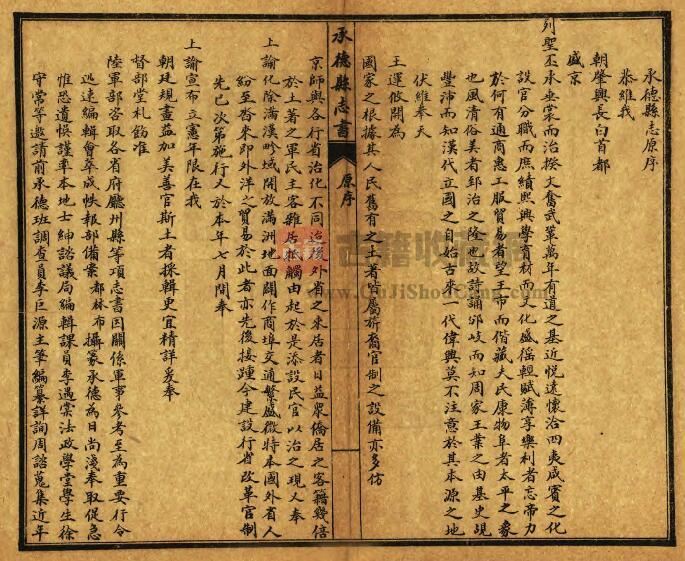 承德縣志原序
恭維我
朝肇興長白首都
盛京
列聖丕承垂裳而治揆文奮武鞏萬年有道之基近悅遠懷洽四夷咸賓之化
設官分職而庶績熙興學育材而文化盛徭輕賦薄享樂利者忘帝力
於何有通商惠工服貿易者望王市而偕藏夫民康物阜者太平之象
也風清俗美者郅治之隆也故詩誦邠岐而知周家王業之由基史覘
豐沛而知漢代立國之自始古來一代偉興莫不注意於其本源之地
伏維奉天
王運攸開為
國家之根據其人民舊有之土著皆屬旂裔官制之設備亦多仿
承德縣志書
原序
京師與各行省治化不同迨後外省之來居者日益眾僑居之客籍幾倍
於土著之軍民主客雜居牴觸由起於是添設民官以治之現又奉
上諭化除滿漢畛域開放滿洲地面闢作商埠交通繁盛微特本國外省人
紛至沓來即外洋之貿易於此者亦先後接踵今建設行省改革官制
先已次第施行又於本年七月間奉
上諭宣布立憲年限在我
朝廷規畫益加美善官斯土者採輯更宜精詳爰奉
督部堂札飭准
陸軍部咨取各省府廳州縣等項志書因關係軍事參考至為重要行令
迅速編輯會萃成帙報部備案都林布攝篆承德為日尚淺奉取促急
惟恐遺悞謹率本地士紳諮議局編輯課員李遇棠法政學堂學生徐
守常等邀請前承德班調查員李巨源主筆編纂詳詢周諮蒐集近年
古籍收藏网
www.GuJiShouCang.com